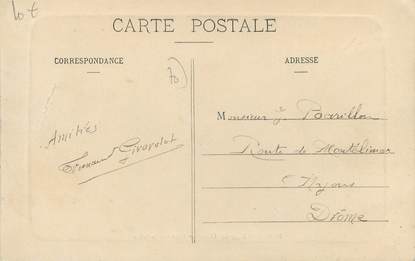 lot
CARTE POSTALE
CORRESPONDANCE
ADRESSE
70
Monsieur J. Barillon
Route de Montélimar
Nyons
Drôme
Amitiés
Fernand